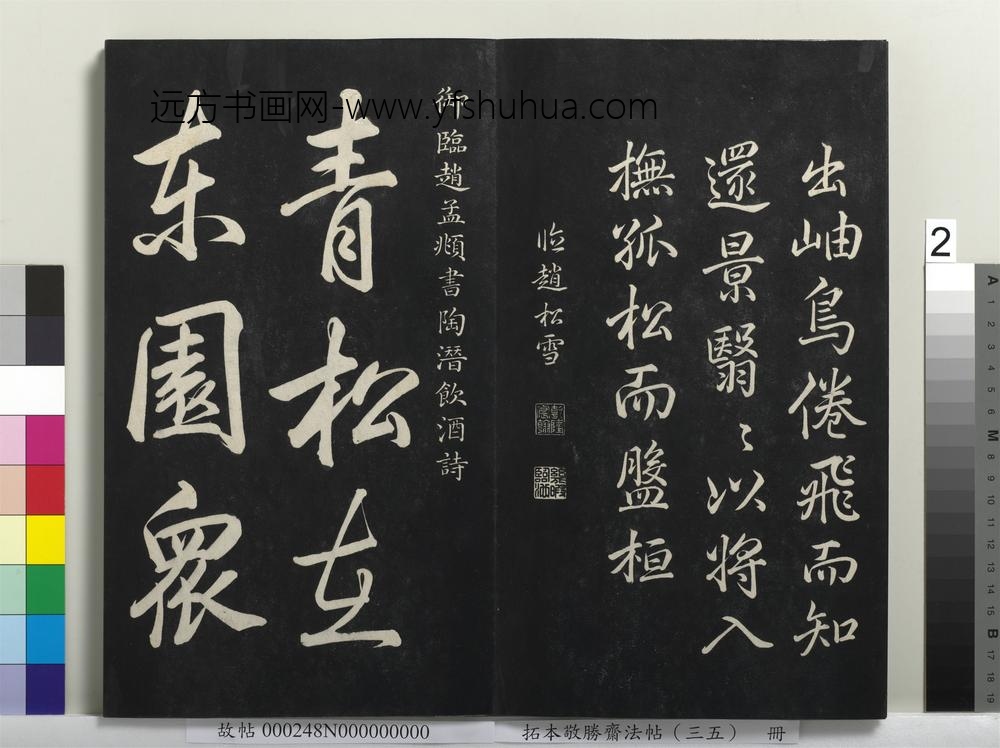 出岫鳥倦飛而知
還景翳〻以將入
撫孤松而盤桓
臨趙松雪
御臨趙孟頫書陶潛飲酒詩
青松在
东園衆
远方书画网-www.yfshuhua.com
2
A
1
2
3
4
5
6
M
8
9
10
11
12
13
14
15
B
17
18
19
故帖 000248N000000000
拓本敬勝齋法帖（三五） 冊